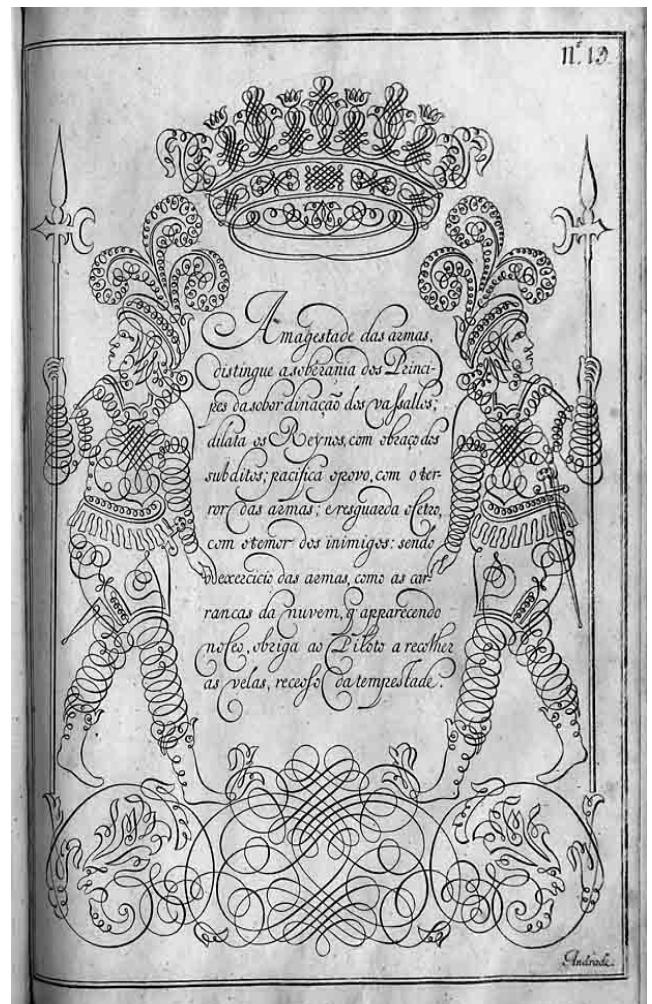 Nº. 19.
A magestade das armas,
distingue a soberania dos Princi-
pes da sobordinação dos vassallos;
dilata os Reynos, com obraço dos
subditos; pacifica opovo, com o ter-
ror das armas; e resguarda oCetro,
com otemor dos inimigos: sendo
oexercicio das armas, como as car-
rancas da nuvem, q̃ apparecendo
noCeo, obriga ao Piloto a recolher
as velas, receoso da tempestade.
Andrade.